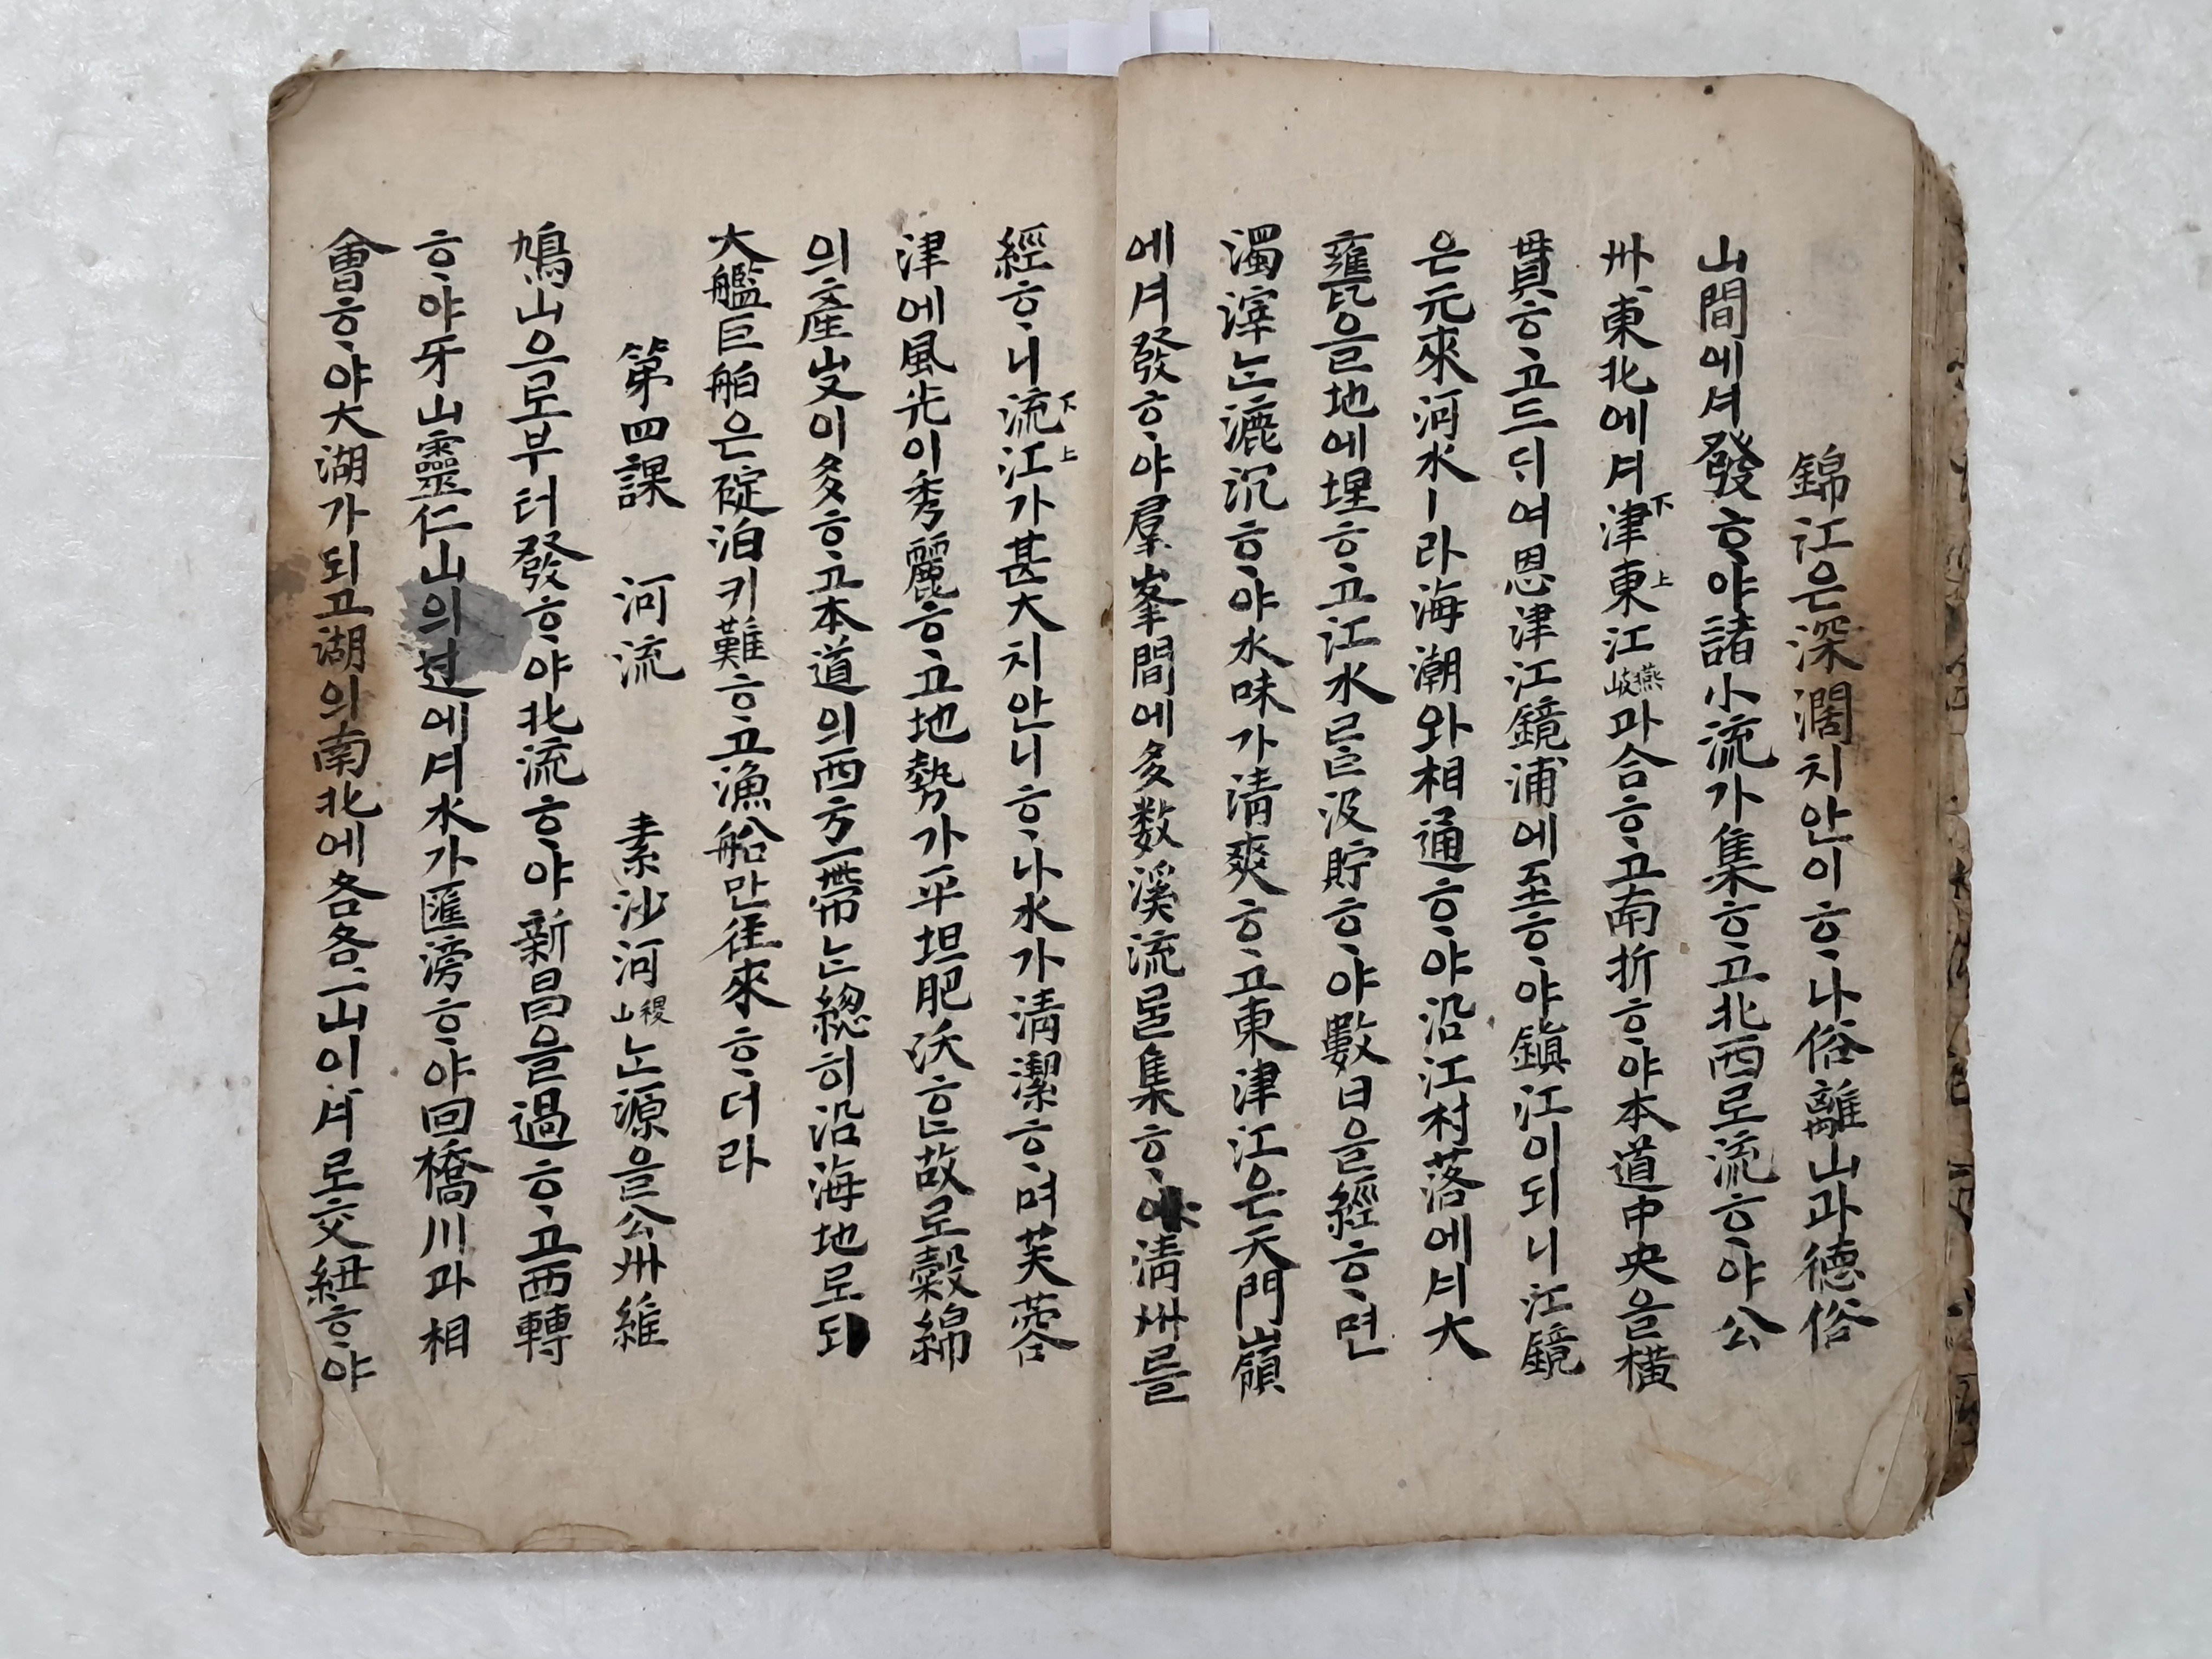 錦江은深濶치안이ᄒᆞ나俗離山과德俗
山間에셔發ᄒᆞ야諸小流가集ᄒᆞ고北西로流ᄒᆞ야公
州東北에셔津下東上江燕岐과合ᄒᆞ고南折ᄒᆞ야本道中央을橫
貫ᄒᆞ고드ᄃᆡ여恩津江鏡浦에至ᄒᆞ야鎭江이되니江鏡
은元來河水ㅣ라海潮와相通ᄒᆞ야沿江村落에셔大
甕을地에埋ᄒᆞ고江水ᄅᆞᆯ汲貯ᄒᆞ야數日을經ᄒᆞ면
濁滓ᄂᆞᆫ漉沉ᄒᆞ야水味가淸爽ᄒᆞ고東津江은天門嶺
에셔發ᄒᆞ야羣峯間에多数溪流를集ᄒᆞ야淸州를
經ᄒᆞ니流下江上가甚大치안니ᄒᆞ나水가淸潔ᄒᆞ며芙蓉
津에風光이秀麗ᄒᆞ고地勢가平坦肥沃ᄒᆞᆫ故로穀綿
의産出이多ᄒᆞ고本道의西方一帶ᄂᆞᆫ總히沿海地로되
大艦巨舶은碇泊키難ᄒᆞ고漁船만往來ᄒᆞ더라
第四課 河流 素沙河稷山ᄂᆞᆫ源을公州維
鳩山으로부터發ᄒᆞ야北流ᄒᆞ야新昌을過ᄒᆞ고西轉
ᄒᆞ야牙山靈仁山의边에셔水가匯滂ᄒᆞ야回橋川과相
會ᄒᆞ야大湖가되고湖의南北에各各一山이셔로交紐ᄒᆞ야